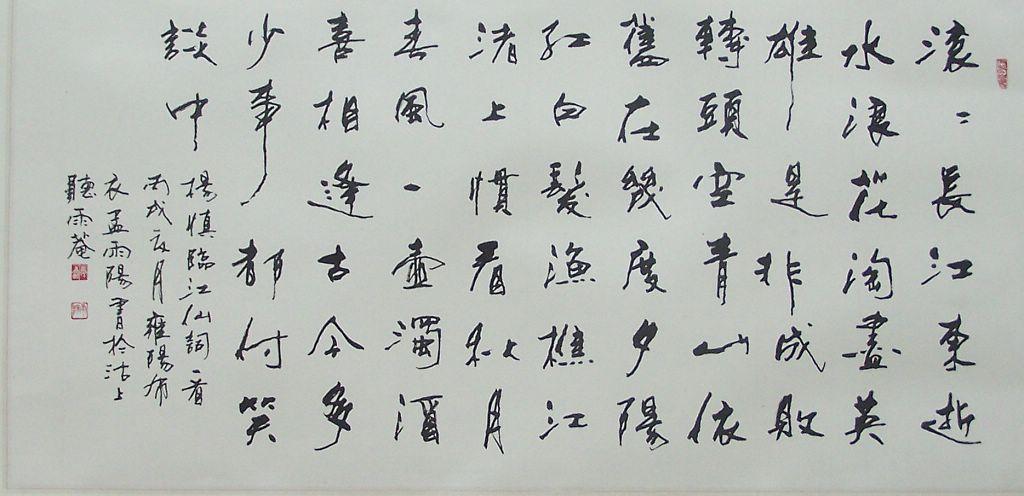 滾〻長江東逝
水浪花淘盡英
雄〻是非成敗
轉頭空青山依
舊在幾度夕陽
紅白髮漁樵江
渚上慣看秋月
春風一壺濁酒
喜相逢古今多
少事〻都付笑
談中
楊慎臨江仙詞一首
丙戌夏月雍陽布
衣孟雨陽書於沽上
聽雨菴